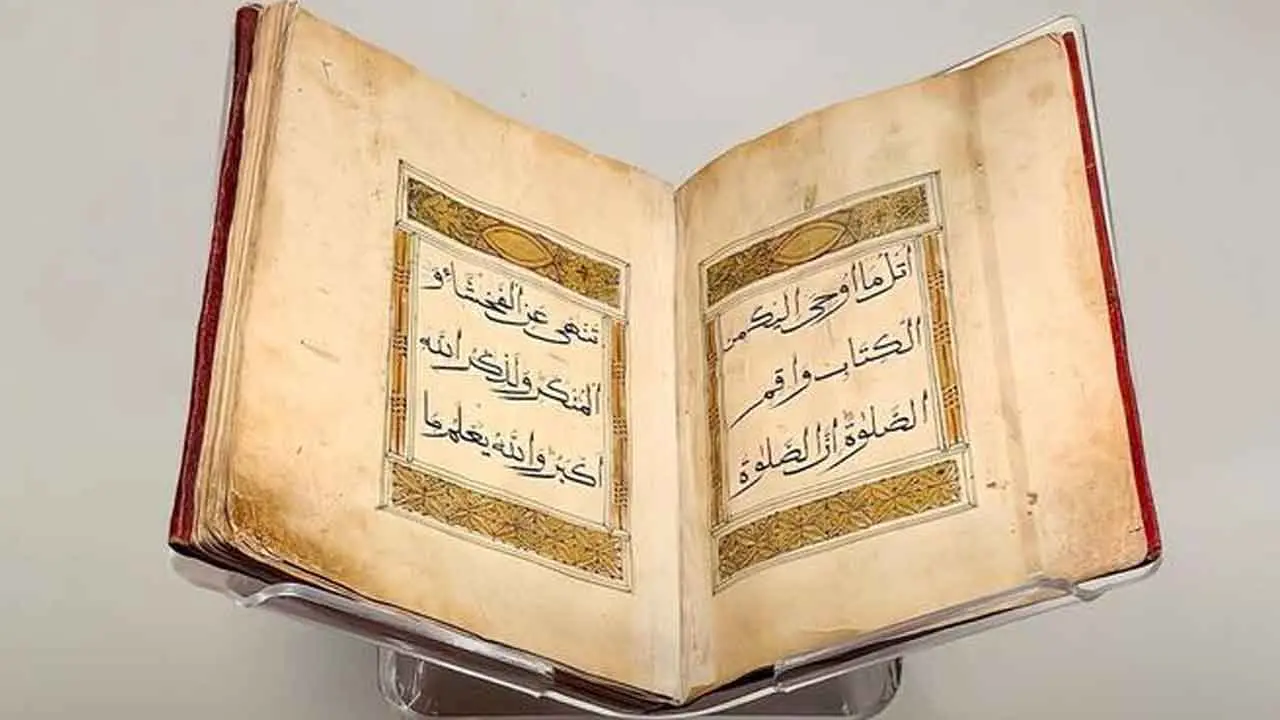 اتل ما اوحی الیک من
الکتاب واقم
الصلوة ان الصلوة
تنهی عن الفحشاء و
المنکر ولذکر الله
اکبر والله یعلم ما